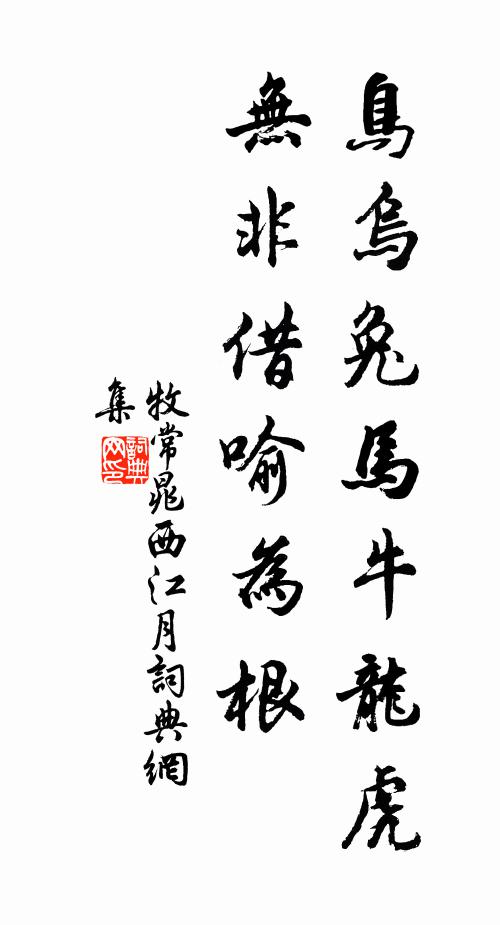 鳥烏兔馬牛龍虎
無非借喻為根
牧常晁西江月詞典網
集
詞典
网印